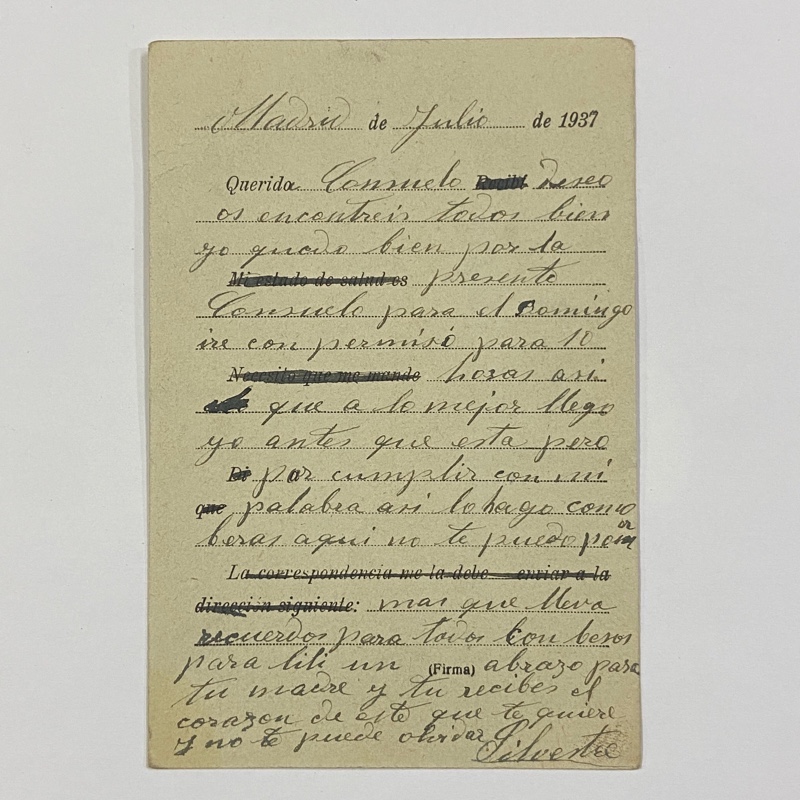 Madrid de Julio de 1937
Querida Consuelo Recibí deseo
os encontreis todos bien
yo quedo bien por la
Mi estado de salud es presente
Consuelo para el Domingo
ire con permisó para 10
Necesito que me mande horas asi
que a lo mejor llego
yo antes que esta pero
Di por cumplir con mi
que palabra asi lo hago como
beras aqui no te puedo poner
La correspondencia me la debe enviar a la
dirección siguiente: mas que lleva
recuerdos para todos con besos
para lili un (Firma) abrazo para
tu madre y tu recibes el
corazon de este que te quiere
y no te puede olvidar Silvestre